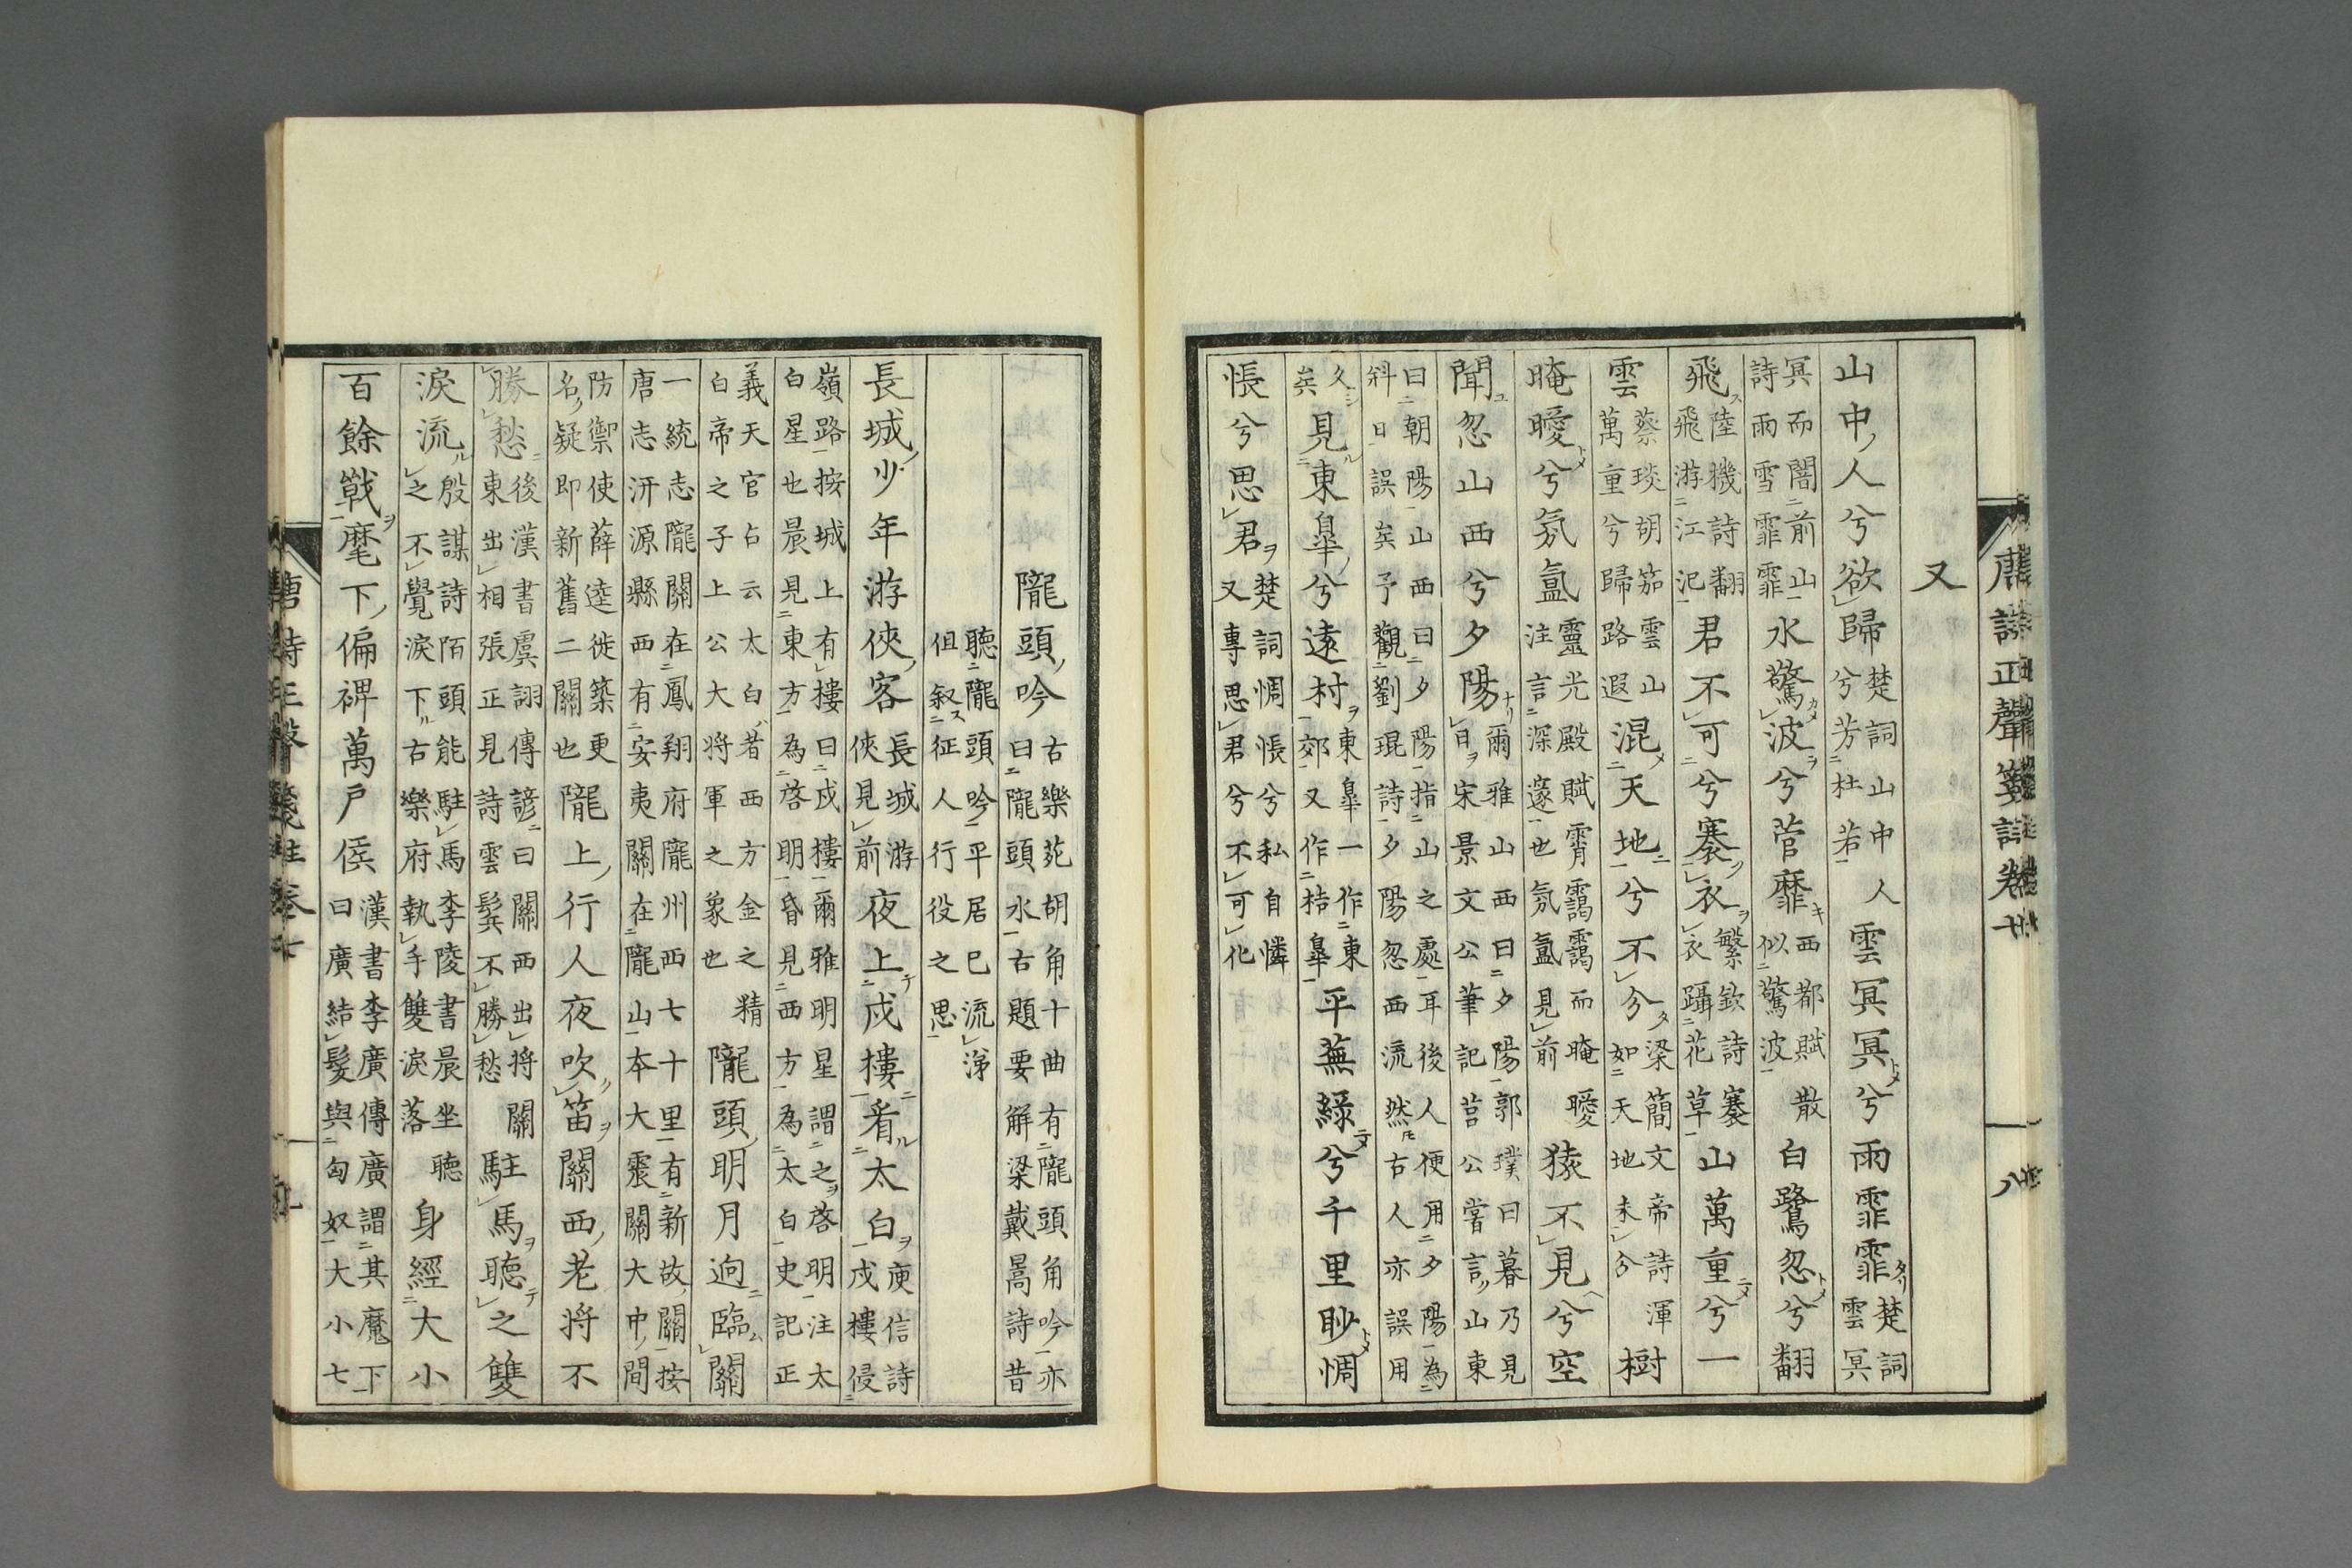 又
山中人兮欲歸楚詞山中人兮芳杜若雲冥冥兮雨霏霏楚詞雲冥
冥而闇前山詩雨雪霏霏水驚波兮菅靡西都賦散似驚波白鷺忽兮翻
飛陸機詩翻飛游江汜君不可兮褰衣繁欽詩褰衣躡花草山萬重兮一
雲蔡琰胡笳雲山萬重兮歸路遐混天地兮不分梁簡文帝詩渾如天地未分樹
晻曖兮氛氳靈光殿賦霄靄靄而晻曖注言深邃也氛氳見前猿不見兮空
聞忽山西兮夕陽爾雅山西曰夕陽郭璞曰暮乃見日宋景文公筆記莒公嘗言山東
曰朝陽山西曰夕陽指山之處耳後人便用夕陽為斜日誤矣予觀劉琨詩夕陽忽西流然古人亦誤用
久矣見東皐兮遠村東皐一作東郊又作桔皐平蕪綠兮千里眇惆
悵兮思君楚詞惆悵兮私自憐又專思君兮不可化
隴頭吟古樂苑胡角十曲有隴頭角吟亦曰隴頭水古題要解梁戴暠詩昔
聽隴頭吟平居已流涕但叙征人行役之思
長城少年游俠客長城游俠見前夜上戍樓看太白庾信詩戍樓侵
嶺路按城上有樓曰戍樓爾雅明星謂之啓明注太白星也晨見東方為啓明昏見西方為太白史記正
義天官占云太白者西方金之精白帝之子上公大將軍之象也隴頭明月迥臨關
一統志隴關在鳳翔府隴州西七十里有新故關按唐志汧源縣西有安夷關在隴山本大震關大中間
防禦使薛逵徙築更名疑即新舊二關也隴上行人夜吹笛關西老將不
勝愁後漢書虞詡傳諺曰關西出將關東出相張正見詩雲鬟不勝愁駐馬聽之雙
淚流殷謀詩陌頭能駐馬李陵書晨坐聽之不覺淚下古樂府執手雙淚落身經大小
百餘戰麾下偏裨萬戶侯漢書李廣傳廣謂其麾下曰廣結髮與匈奴大小七